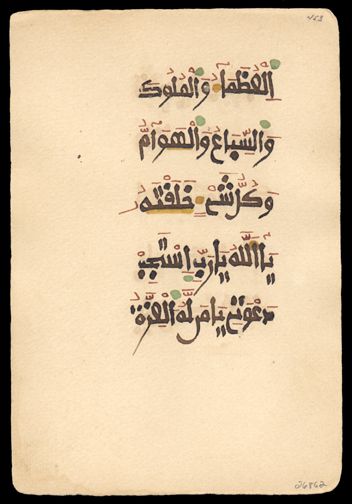 463
العظماء والملوك
والسباع والهوام
وكل شيء خلقته
يا الله يا رب استجب
دعوتي يا من له العزة
26862